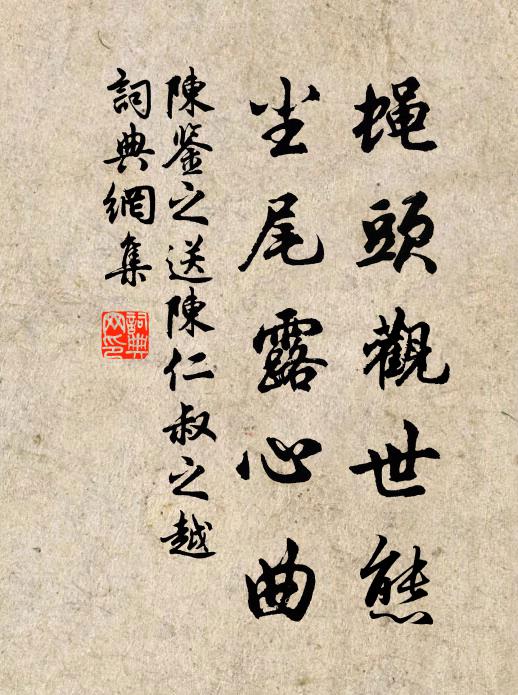 蝇頭觀世態
尘尾露心曲
陳鉴之送陳仁叔之越
詞典網集
詞典
网印